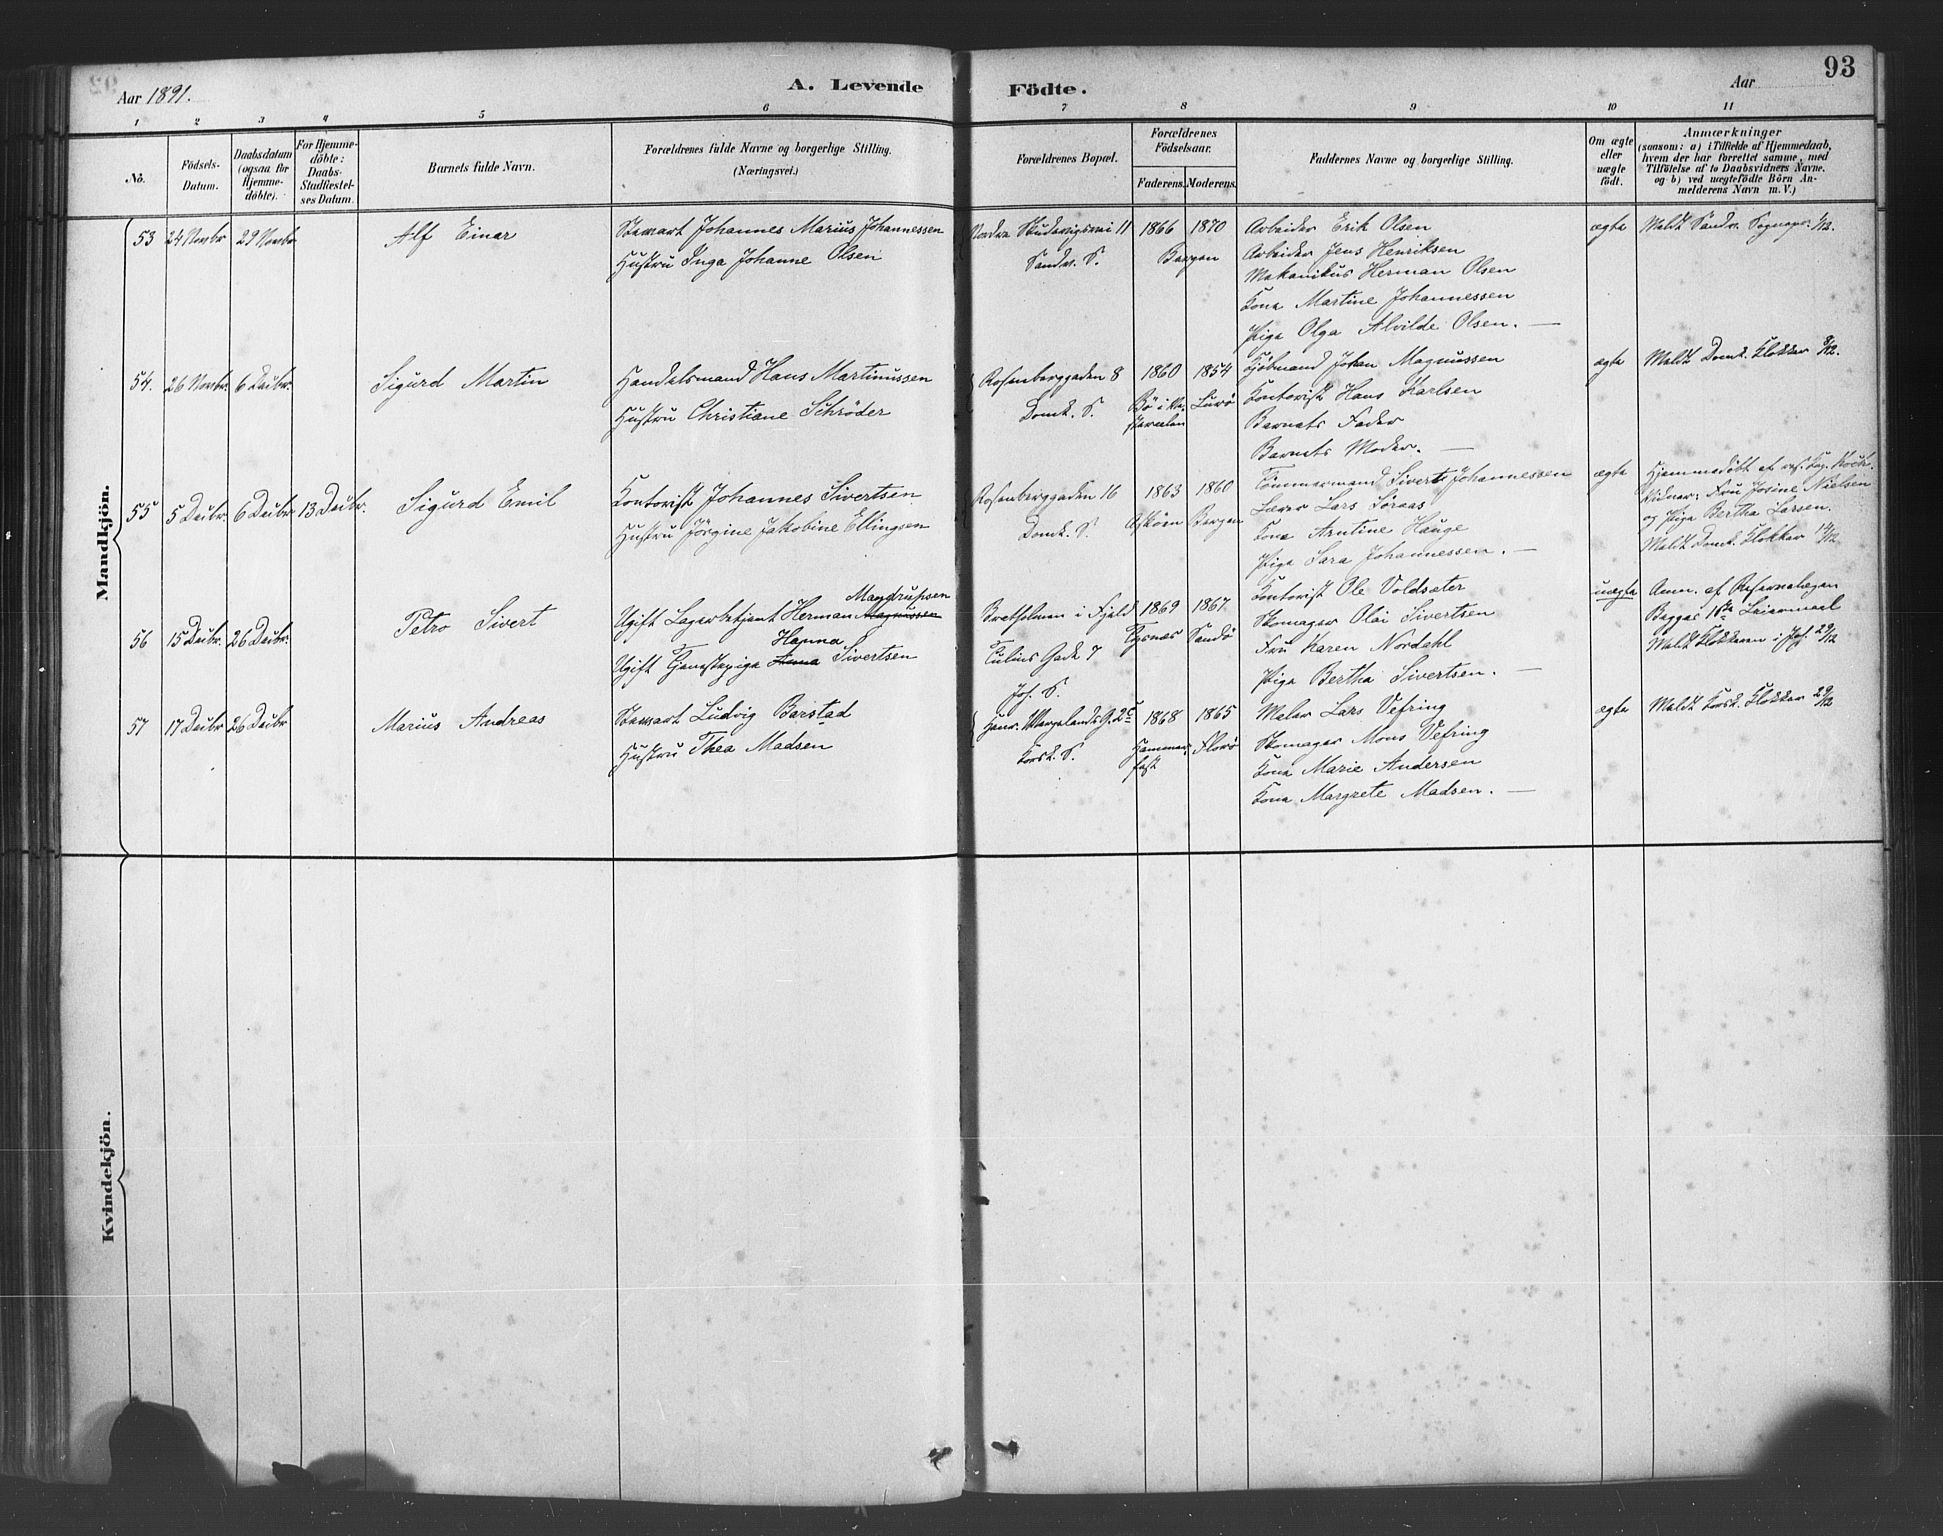 93
Aar 1891.
A. Levende Födte.
Aar
1 2 3 4 5 6 7 8 9 10 11
No.
Födsels-
Datum.
Daabsdatum
(ogsaa for
Hjemme-
döbte).
For Hjemme-
döbte:
Daabs-
Stadfæstel-
ses Datum.
Barnets fulde Navn.
Forældrenes fulde Navne og borgerlige Stilling.
(Næringsvei.)
Forældrenes Bopæl.
Forældrenes
Födselsaar.
Faderens. Moderens.
Faddernes Navne og borgerlige Stilling.
Om ægte
eller
uægte
födt.
Anmærkninger
(saasom: a) i Tilfælde af Hjemmedaab,
hvem der har forrettet samme, med
Tilföielse af to Daabsvidners Navne,
og b) ved uægtefödte Börn An-
melderens Navn m. V.)
Mandkjön.
53 24 Novbr 29 Novbr
Alf Einar
Stuart Johannes Marius Johannessen
Hustru Inga Johanne Olsen
Nordre Skudevigsvei 11
Sandv. S.
1866 1870
Bergen
Arbeider Erik Olsen
Arbeider Jens Henriksen
Mekanikus Herman Olsen
Kona Martine Johannessen
Pige Olga Alvilde Olsen. —
ægte
Meldt Sandv. Sognepr. 1/12.
54. 26 Novbr. 6 Decbr.
Sigurd Martin
Handelsmand Hans Martinussen
Hustru Christiane Schröder
Rosenberggaden 8
Domk. S.
1860 1854
Bö i Ve-
steraalen
Lurö
Kjöbmand Johan Magnussen
Kontorist Hans Karlsen
Barnets Fader
Barnets Moder. —
ægte
Meldt Domk. Klokker 8/12.
55 5 Decbr. 6 Decbr. 13 Decbr.
Sigurd Emil
Kontorist Johannes Sivertsen
Hustru Jörgine Jakobine Ellingsen
Rosenberggaden 16
Domk. S.
1863 1860
Askøen Bergen
Tömmermand Sivert Johannessen
Lærer Lars Söraas
Kona Arntine Hauge
Pige Sara Johannessen. —
ægte
Hjemmedöbt af res. Kap. Koch.
Vidner: Fru Josine Nielsen
og Pige Bertha Larsen.
Meldt Domk. Klokker 14/12
56 15 Decbr. 26 Decbr.
Petro Sivert
Mandrupsen
Ugift Lagerbetjent Herman Magnussen
Hanna
Ugift Tjenestepige Anna Sivertsen
Bretsolmen i Fjeld
Tulius Gade 7
Joh. S.
1869 1867
Tysnæs Sandö
Kontorist Ole Voldsæter
Skomager Olai Sivertsen
Fru Karen Nordahl
Pige Bertha Sivertsen. —
uægte
Anm. af Reservelægen
Begges 1ste Leiermaal
Meldt Klokkeren i Joh. 29/12
57 17 Decbr 26 Decbr
Marius Andreas
Stuart Ludvig Barstad
Hustru Thea Madsen
Henr. Wergelands G. 2c
Korsk. S.
1868 1865
Hammer-
fest
Florö
Maler Lars Vefring
Skomager Mons Vefring
Kona Marie Andersen
Kona Margrete Madsen. —
ægte
Meldt Korsk. Klokker 29/12
Kvindekjön.